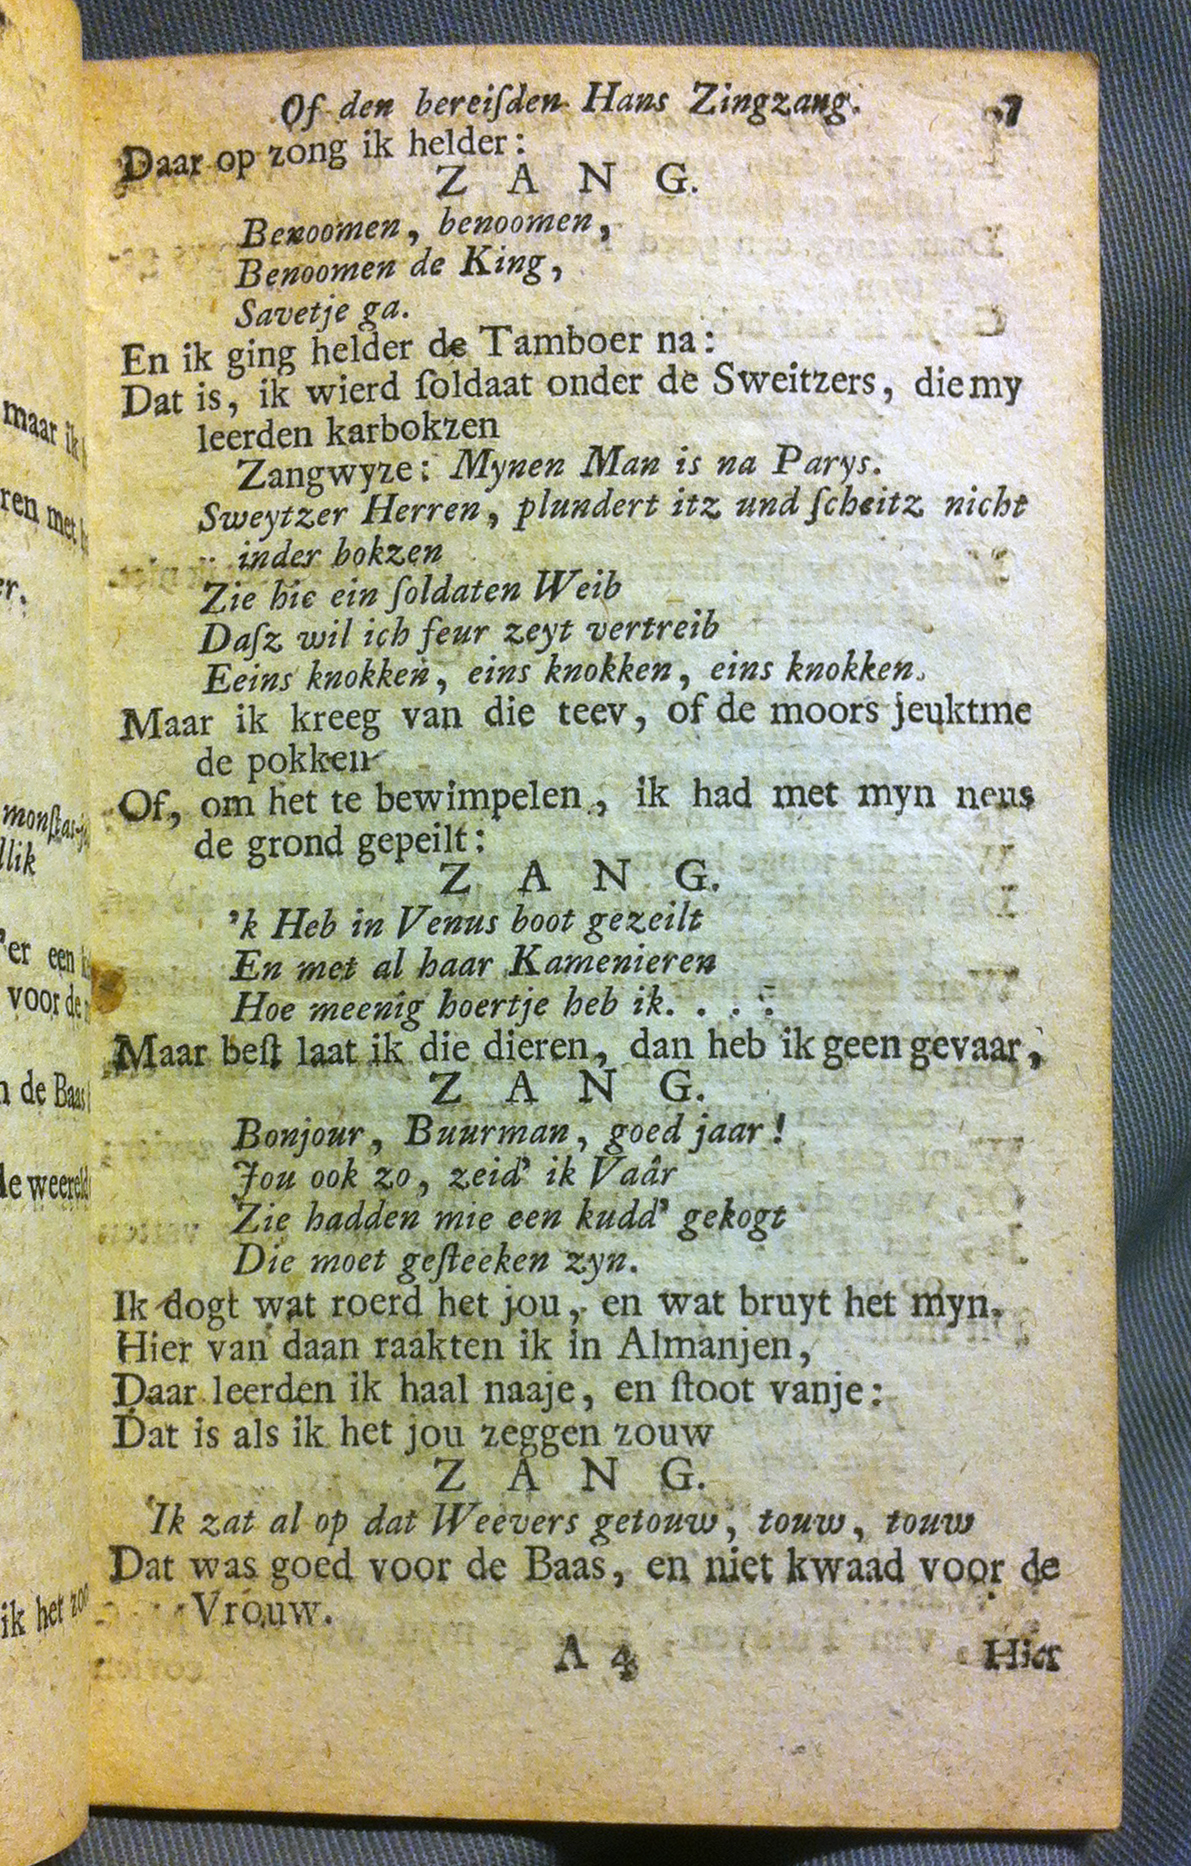 Of den bereiſden Hans Zingzang. 7
Daar op zong ik helder:
Z A N G.
Benoomen, benoomen,
Benoomen de King,
Savetje ga.
En ik ging helder de Tamboer na:
Dat is, ik wierd ſoldaat onder de Sweitzers, die my
leerden karbokzen
Zangwyze: Mynen Man is na Parys.
Sweytzer Herren, plundert itz und ſcheitz nicht
inder bokzen
Zie hie ein ſoldaten Weib
Daſz wil ich feur zeyt vertreib
Eeins knokken, eins knokken, eins knokken.
Maar ik kreeg van die teev, of de moors jeuktme
de pokken
Of, om het te bewimpelen, ik had met myn neus
de grond gepeilt:
Z A N G.
'k Heb in Venus boot gezeilt
En met al haar Kamenieren
Hoe meenig hoertje heb ik. . . .
Maar beſt laat ik die dieren, dan heb ik geen gevaar,
Z A N G.
Bonjour, Buurman, goed jaar!
Jou ook zo, zeid' ik Vaâr
Zie hadden mie een kudd' gekogt
Die moet geſteeken zyn.
Ik dogt wat roerd het jou, en wat bruyt het myn.
Hier van daan raakten ik in Almanjen,
Daar leerden ik haal naaje, en ſtoot vanje:
Dat is als ik het jou zeggen zouw
Z A N G.
'Ik zat al op dat Weevers getouw, touw, touw
Dat was goed voor de Baas, en niet kwaad voor de
Vrouw.
A 4 Hier
maar ik
ren met
er.
llik
'er een
voor de
n de Baas
de weereld
ik het zoo